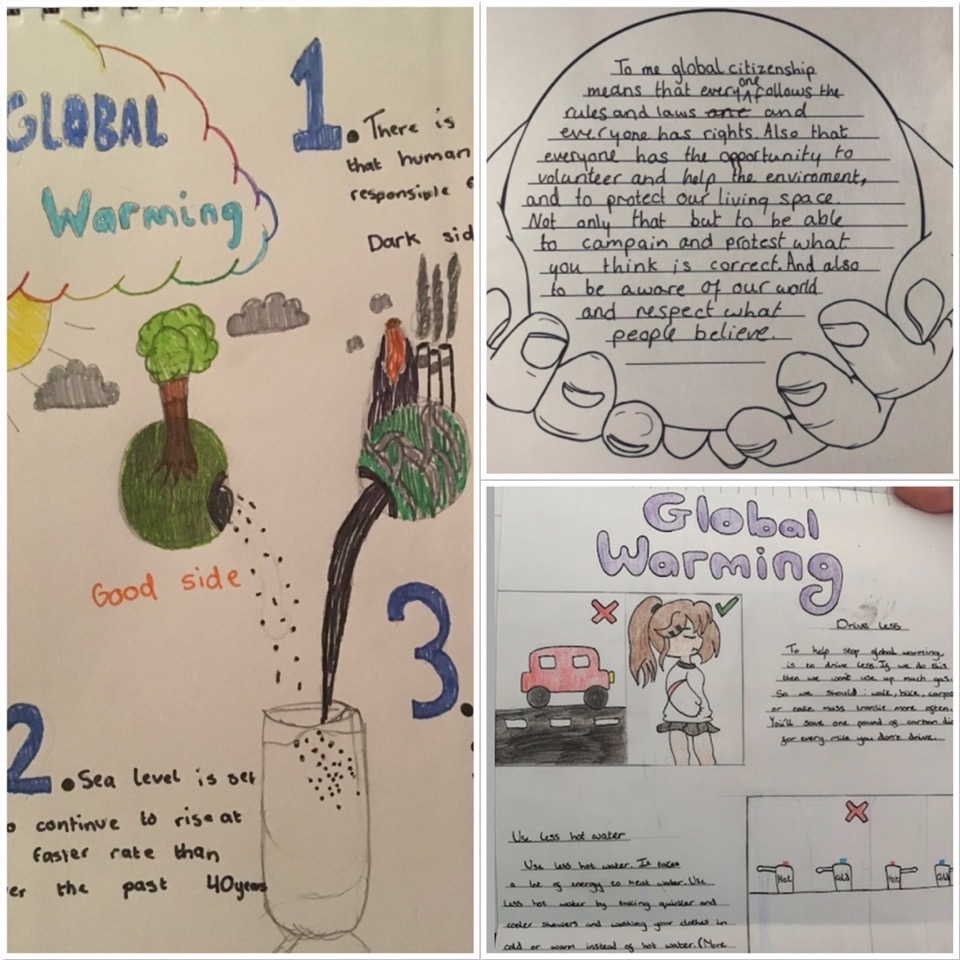 GLOBAL
Warming
1. There is
that human
responsible
Dark sid
Good side
3.
2 • Sea level is set
o continue to rise at
faster rate than
er the past 40years
To me global citizenship
one
means that every follows the
rules and laws are and
everyone has rights. Also that
everyone has the opportunity to
volunteer and help the enviroment,
and to protect our living space.
Not only that but to be able
to campain and protest what
you think is correct. And also
to be aware of our world
and respect what
people believe.
Global
Warming
Drive less
To help stop global warming,
is to drive less. If we do this
then we wont use up much gas.
So we should : walk, bike, carpo
or take mass transit more often.
You'll save one pound of carbon dio
for every mile you don't drive.
Use less hot water
Use less hot water. It takes
a lot of energy to heat water. Use
less hot water by taking quicker and
cooler showers and washing your clothes in
cold or warm instead of hot water. (More
Hot
Cold
Hot
Cold